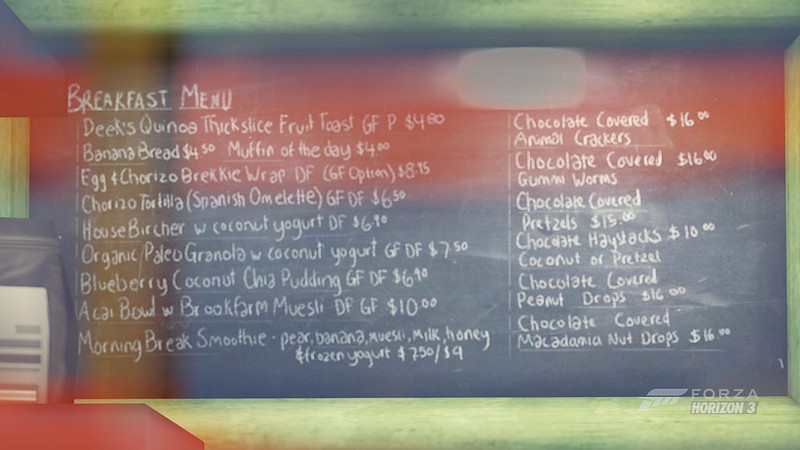 BREAKFAST MENU
Deeks Quinoa Thickslice Fruit Toast GF P $4.80
Banana Bread $4.50 Muffin of the day $4.00
Egg & Chorizo Brekkie Wrap DF (GF Option) $8.95
Chorizo Tortilla (Spanish Omelette) GF DF $6.50
House Bircher w coconut yogurt DF $6.90
Organic/Paleo Granola w coconut yogurt GF DF $7.50
Blueberry Coconut Chia Pudding GF DF $6.90
Acai Bowl w Brookfarm Muesli DF GF $10.00
Morning Break Smoothie - pear, banana, muesli, milk, honey
& frozen yogurt $7.50/$9
Chocolate Covered $16.00
Animal Crackers
Chocolate Covered $16.00
Gummi Worms
Chocolate Covered
Pretzels $15.00
Chocolate Haystacks $10.00
Coconut or Pretzel
Chocolate Covered
Peanut Drops $16.00
Chocolate Covered
Macadamia Nut Drops $16.00
FORZA
HORIZON 3